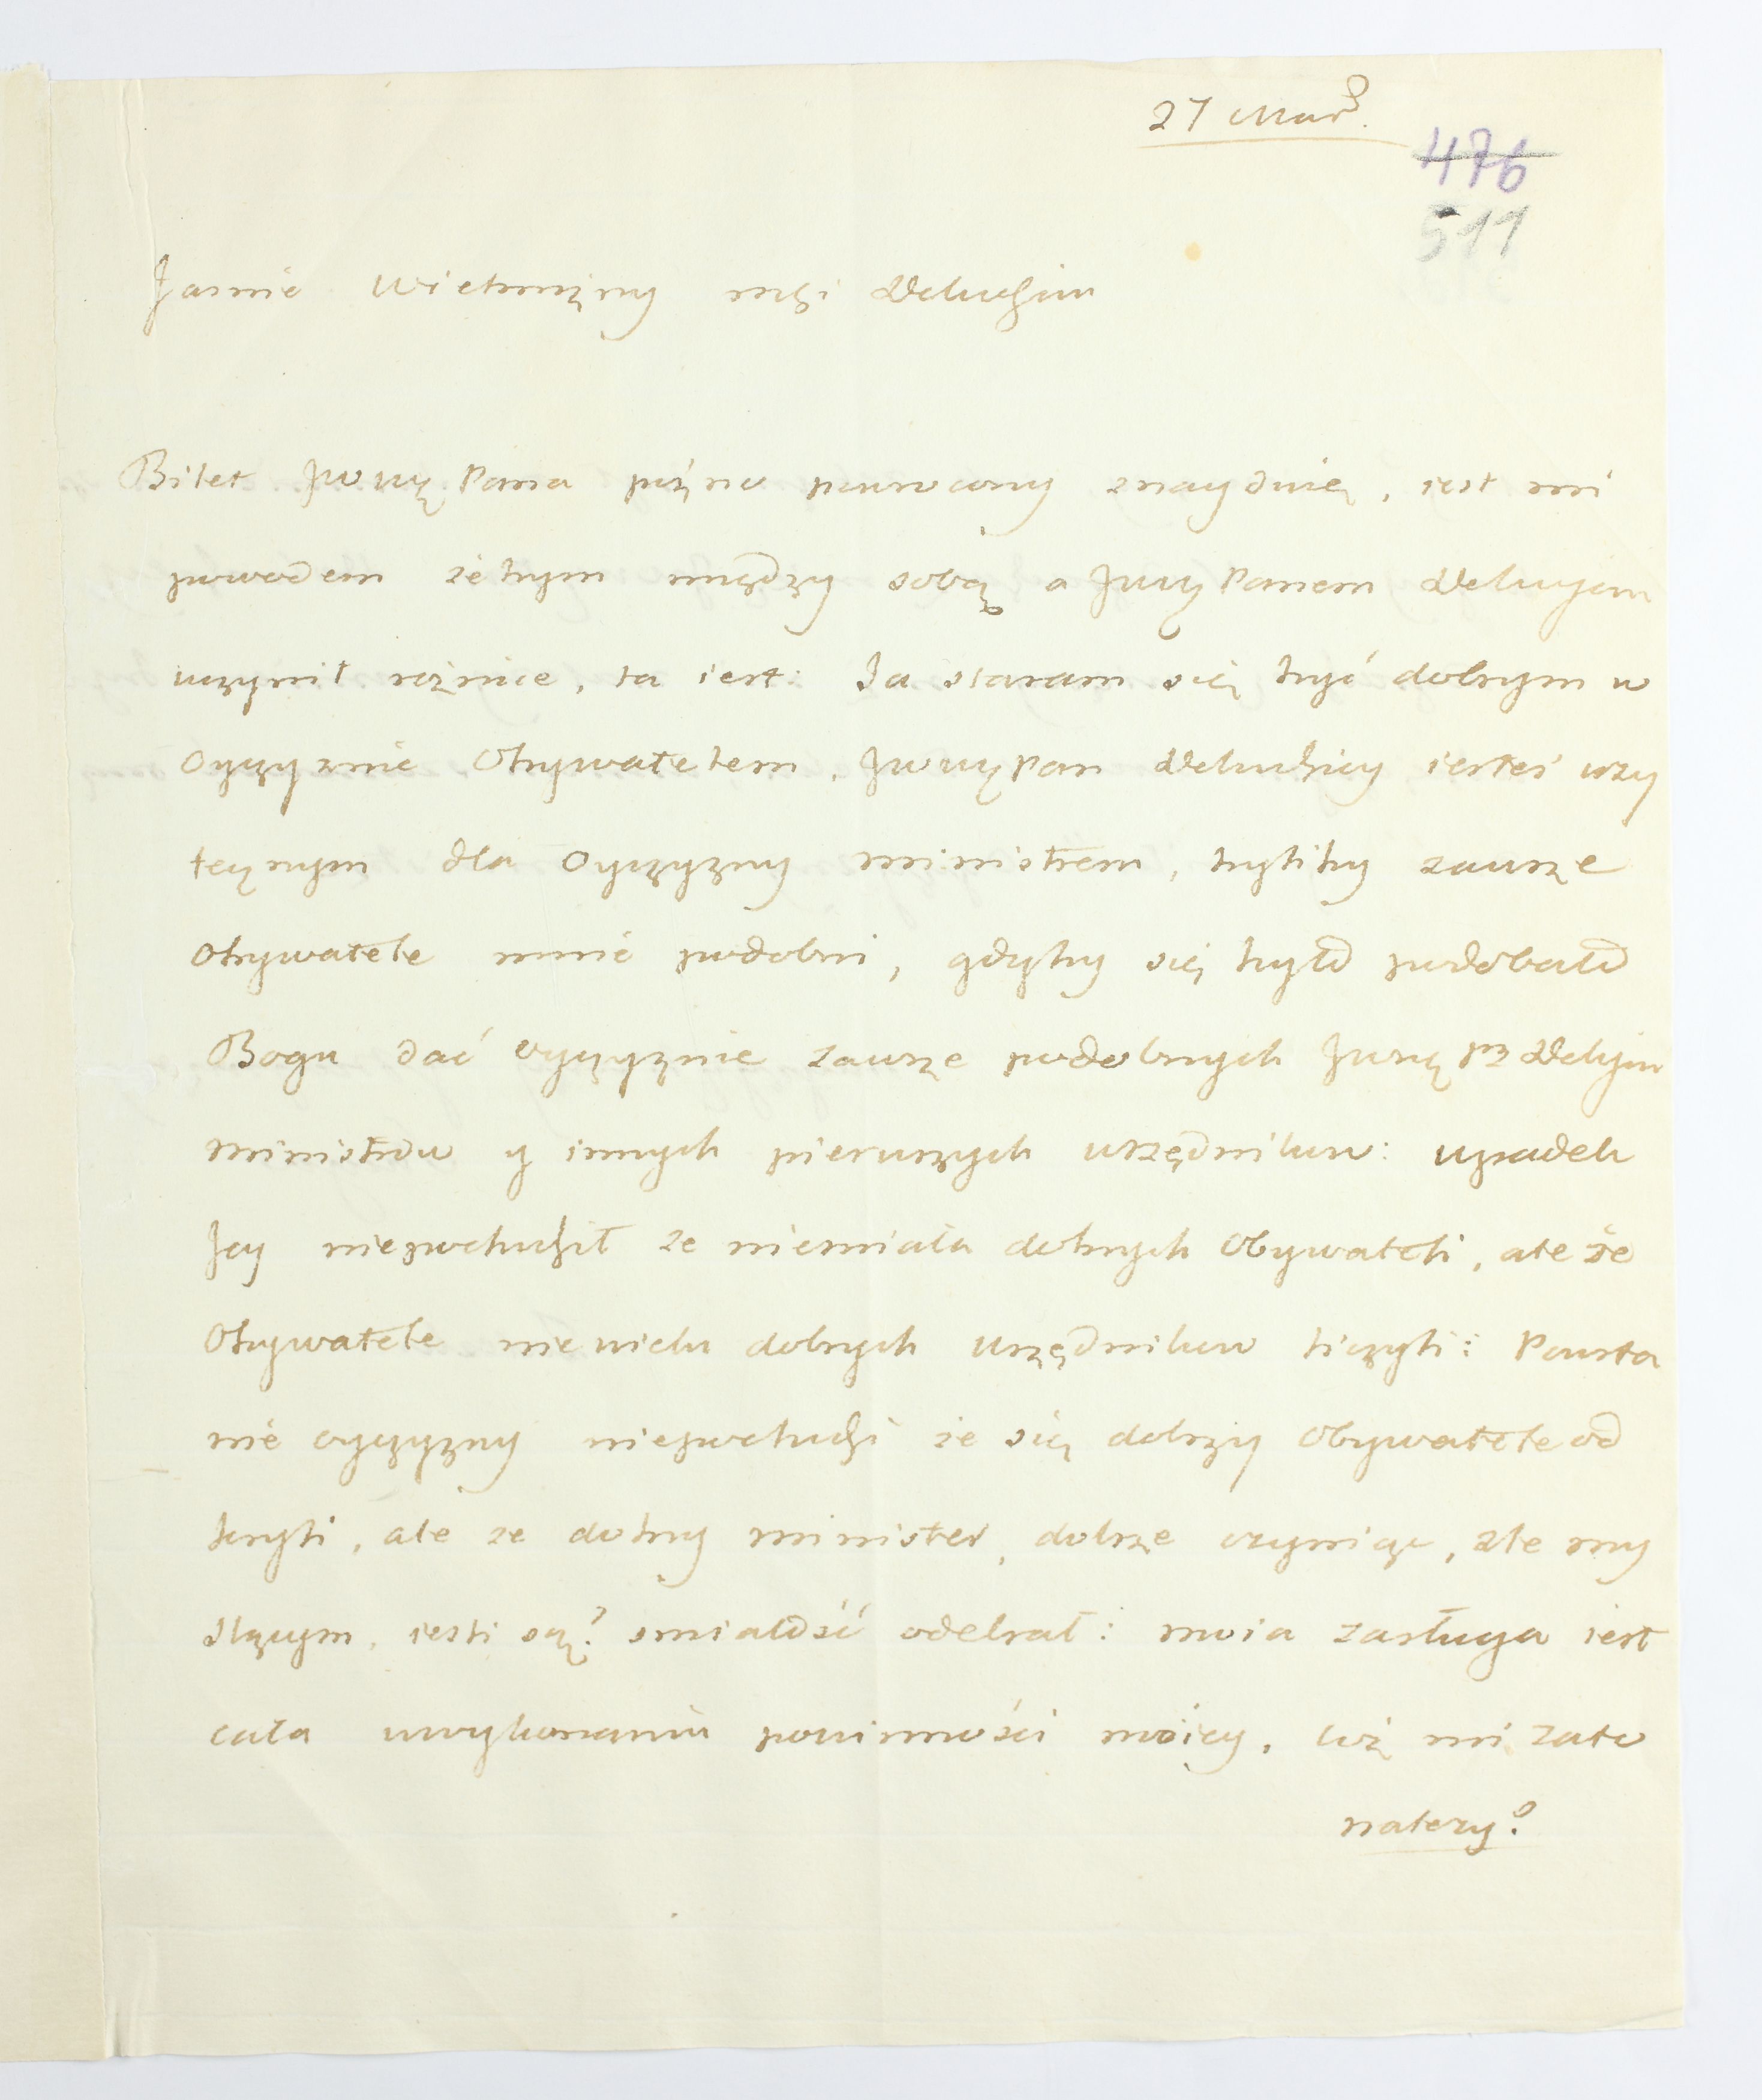 27 Mar.
476
511
Jasnie Wielmozny msci Dobrodzieiu
Bilet JWWą Pana pożno powrocony znayduię, iest mi
powodem żebym między sobą a JWWą Panem
uczynił rożnice, ta iest: Ja staram się być dobrym w
Oyczyznie Obywatelem, JWWą Pan iesteś uzy
tecznym dla Oyczyzny ministrem, byliby zawsze
Obywatele mnie podobni, gdyby się było podobało
Bogu dać oyczyznie zawsze podobnych JWWą
ministrow y innych pierwszych urzędnikow: upadek
Jey niepochodził ze niemiała dobrych Obywateli, ale że
Obywatele nie wielu dobrych Urzędnikow liczyli: Powsta
nie oyczyzny niepochodzi że się dobrzy Obywatele od
kryli, ale ze dobry minister, dobrze czyniąc, złe my
slącym, iesli są? smiałość odebrał: moia zasługa iest
cała wwykonaniu powinności moiey, coż mi zato
nalezy?